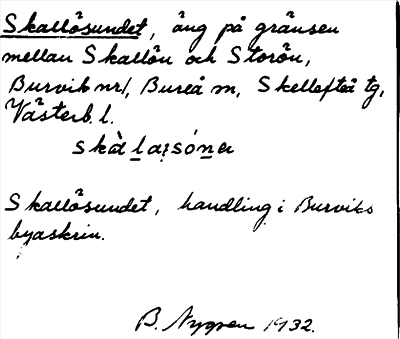 Skallösundet, äng på gränsen
mellan Skallön och Storön,
Burvik nr 1, Bureå sn, Skellefteå tg,
Västerb. l.
Skallösundet, handling i Burviks
byaskrin.
B. Nygren 1932.